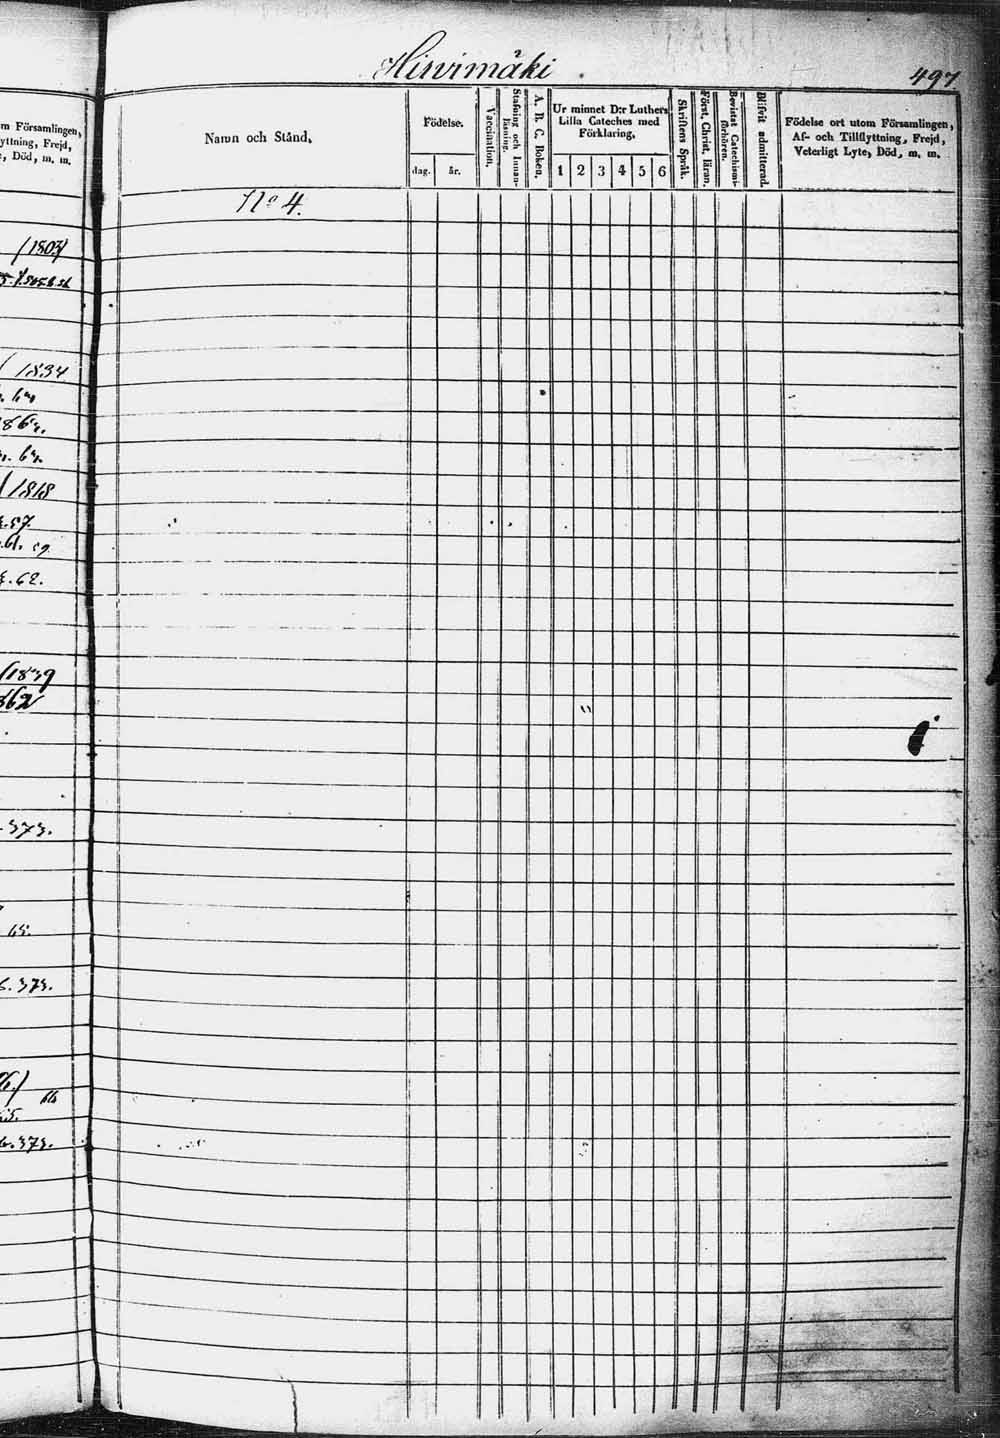 Hirvimäki
497.
m Församlingen,
yttning, Frejd,
, Död, m. m.
Namn och Stånd,
Födelse.
dag.
år.
Vaccination.
Stafning och Innanläsning.
A. B. C. Boken.
Ur minnet D:r Luthers
Lilla Cateches med
Förklaring,
1 2 3 4 5 6
Skriftens Språk.
Först. Christ. läran.
Bevistat Catechismi-
förhören.
Blifvit admitterad.
Födelse ort utom Församlingen,
Af- och Tillflyttning, Frejd,
Veterligt Lyte, Död, m. m.
No 4.
(1803)
1834
1818
.57.
.61. 59
.62.
(1839
862
.373.
65.
6.373.
66
6.373.